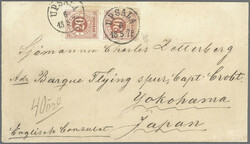 UPSALA
UPSALA
20
20
Sjömannen Charles Zotterberg
Adr Barque Flying spur, Capt. Crobt
Yokohama
Japan
40 öre
Engelsk Consulat